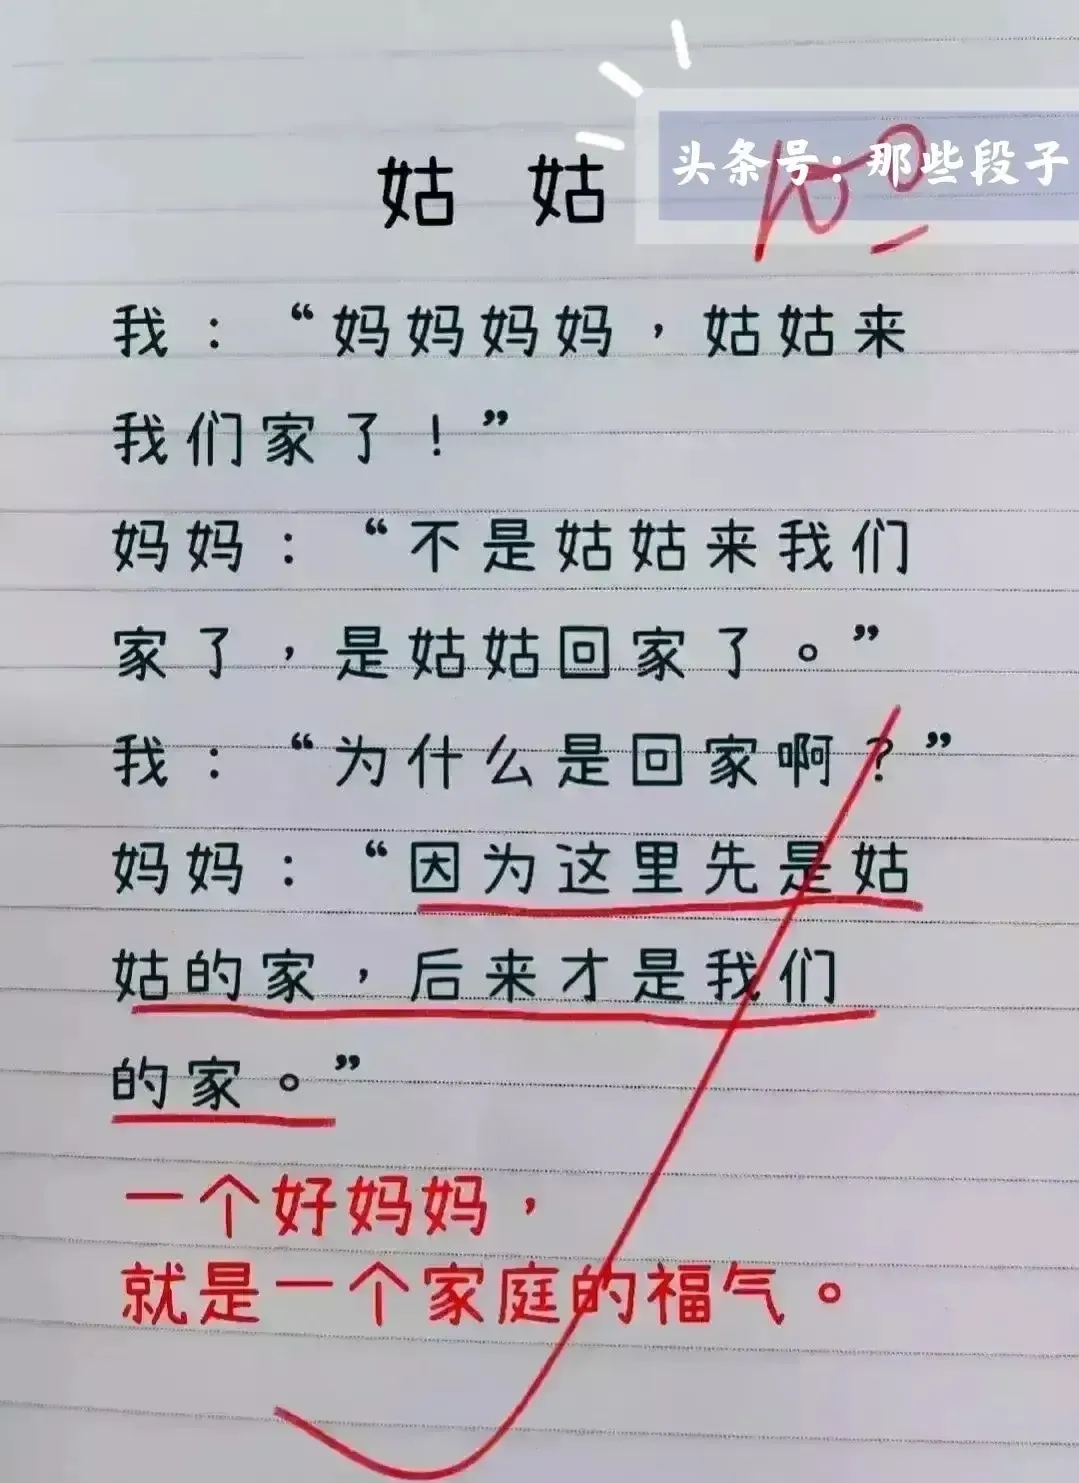 头条号:那些段子
姑姑
我：“妈妈妈妈，姑姑来
我们家了！”
妈妈：“不是姑姑来我们
家了，是姑姑回家了。”
我：“为什么是回家啊？”
妈妈：“因为这里先是姑
姑的家，后来才是我们
的家。”
一个好妈妈，
就是一个家庭的福气。